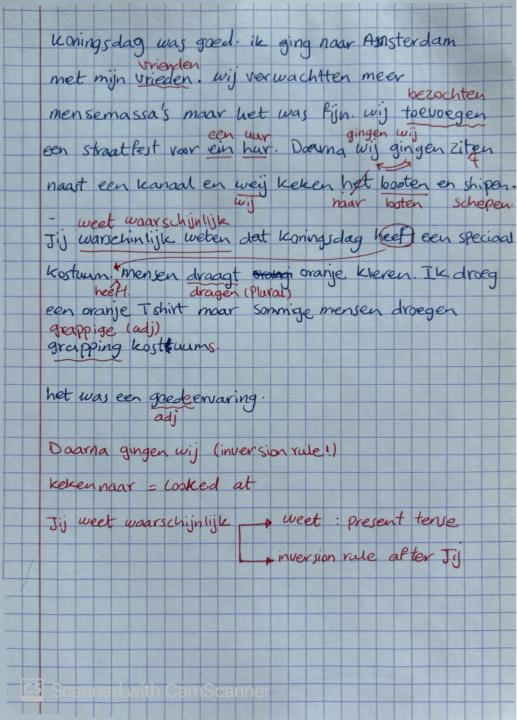 Koningsdag was goed. ik ging naar Amsterdam
vrienden
met mijn vrieden. wij verwachtten meer
bezochten
mensemassa's maar het was fijn. wij toevoegen
een uur gingen wij
een straatfest voor ein hur. Daarna wij gingen ziten
naast een kanaal en weij keken het booten en shipen.
wij naar boten schepen
weet waarschijnlijk
Jij warschinlijk weten dat Koningsdag heeft een speciaal
kostuum. mensen draagt oranje kleren. Ik droeg
heeft. dragen (plural)
een oranje T shirt maar sommige mensen droegen
grappige (adj)
grapping kostuums.
het was een goede ervaring.
adj
Daarna gingen wij (inversion rule!)
keken naar = looked at
Jij weet waarschijnlijk → weet : present tense
→ inversion rule after Jij
CS Scanned with CamScanner